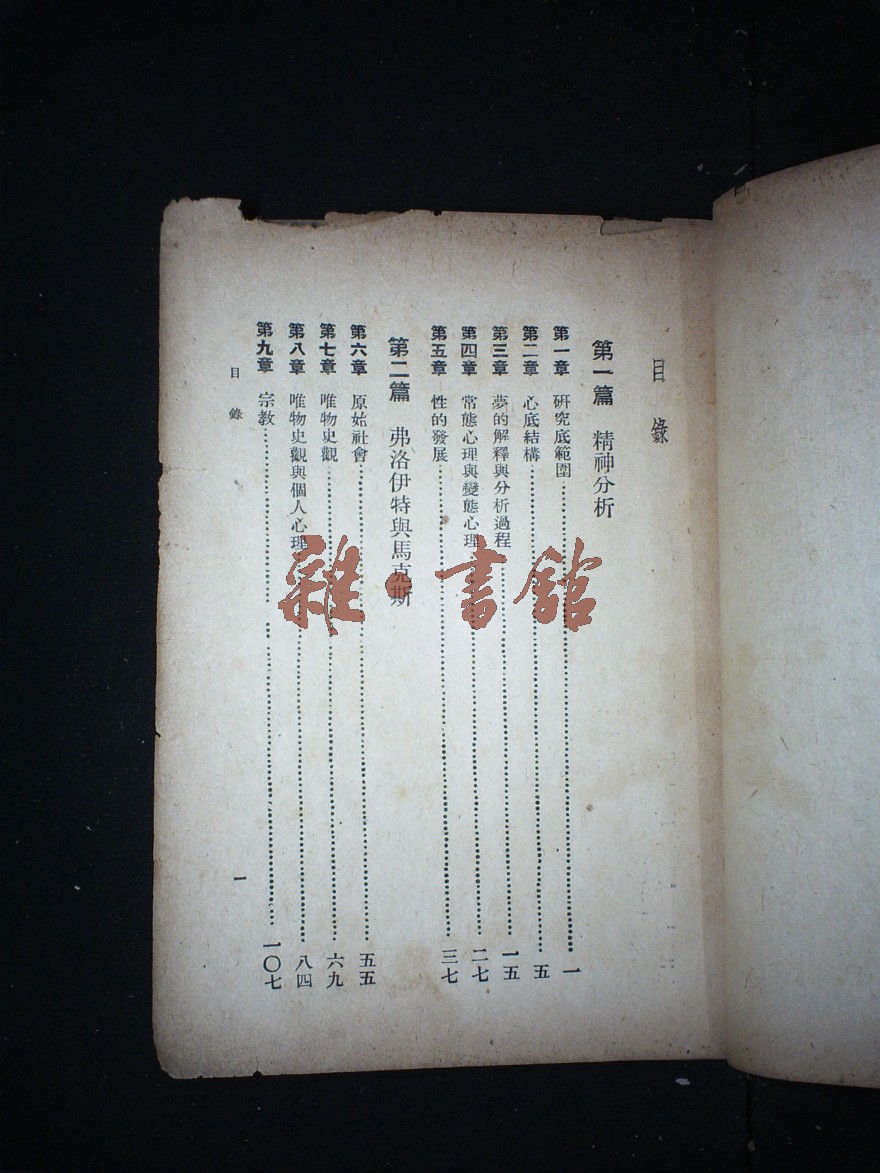 目錄
第一篇 精神分析
第一章 研究底範圍……一
第二章 心底結構……五
第三章 夢的解釋與分析過程……一五
第四章 常態心理與變態心理……二七
第五章 性的發展……三七
第二篇 弗洛伊特與馬克斯
第六章 原始社會……五五
第七章 唯物史觀……六九
第八章 唯物史觀與個人心理……八四
第九章 宗教……一〇七
目錄 一
雜·書館